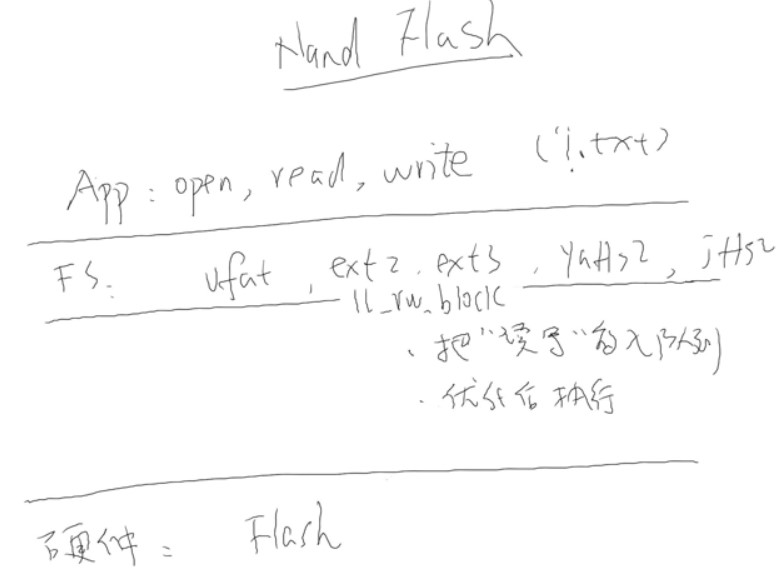 Nand Flash
App: open, read, write ("1.txt)
FS: vfat, ext2, ext3, yaffs2, jffs2
ll_rw_block
. 把"读写"放入队列
. 优化后执行
硬件: Flash